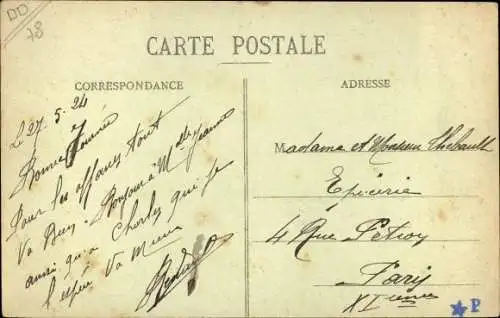 DD
78
CARTE POSTALE
CORRESPONDANCE
ADRESSE
L 27.5.24
Bonne Journée
Pour les affaires tout
Va Bien. Bonjour à Melle Jeanne
ainsi qu'a Charles qui je
l'espère Va Mieux
Madame et Monsieur Thébault
Epicerie
4 Rue Pétion
Paris
XI ième
P